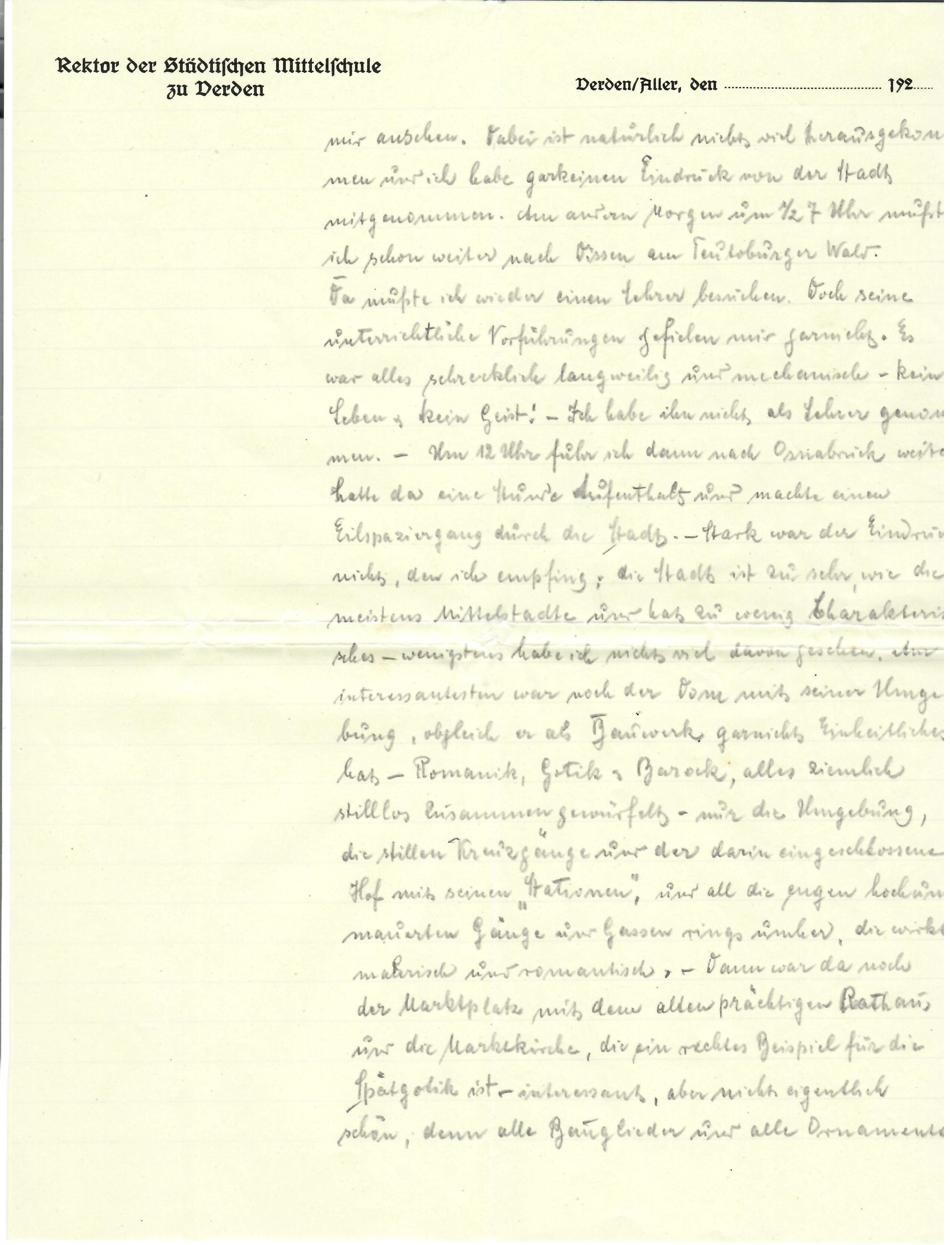 Rektor der Städtischen Mittelschule
zu Verden
Verden/Aller, den ........................ 192.....
mir ansehen. Dabei ist natürlich nicht viel herausgekom
men und ich habe garkeinen Eindruck von der Stadt
mitgenommen. Am andern Morgen um 1/2 7 Uhr mußt
ich schon weiter nach Dissen am Teutoburger Wald.
Da mußte ich wieder einen Lehrer besuchen. Doch seine
unterrichtliche Vorführungen gefielen mir garnicht. Es
war alles schrecklich langweilig und mechanisch – kein
Leben & kein Geist! – Ich habe ihn nicht als Lehrer genom
men. – Um 12 Uhr fuhr ich dann nach Osnabrück weite
hatte da eine Stunde Aufenthalt und machte einen
Eilspaziergang durch die Stadt. – Stark war der Eindruc
nicht, den ich empfing; die Stadt ist zu sehr, wie die
meistens Mittelstadte und hat zu wenig Charakteris
sches – wenigstens habe ich nicht viel davon gesehen. Am
interessantesten war noch der Dom mit seiner Umge
bung, obgleich er als Bauwerk garnichts Einheitliches
hat – Romanik, Gotik & Barock, alles ziemlich
stillos zusammengewürfelt – nur die Umgebung,
die stillen Kreuzgänge und der darin eingeschlossene
Hof mit seinen „Stationen", und all die engen hochum
mauerten Gänge und Gassen rings umher, die wirkt
malerisch und romantisch. – Dann war da noch
der Marktplatz mit dem alten prächtigen Rathaus
und die Marktkirche, die ein rechtes Beispiel für die
Spätgotik ist – interessant, aber nicht eigentlich
schön, denn alle Bauglieder und alle Ornamente